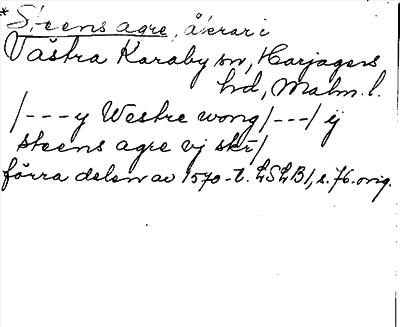 *Steens agre, åkrar i
Västra Karaby sn, Harjagers
hd, Malm. l.
/---y Westre wong/---/ ij
steens agre vj skr/
förra delen av 1570-t. LSLB1, s. 76. orig.